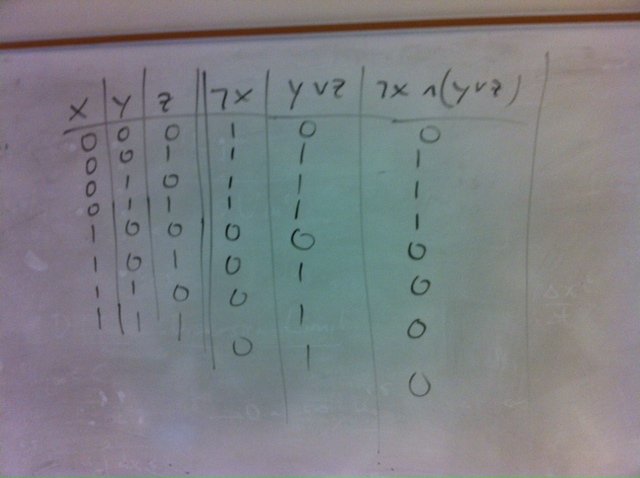 x y z ¬x y∨z ¬x ∧(y∨z)
0 0 0 1 0 0
0 0 1 1 1 1
0 1 0 1 1 1
0 1 1 1 1 1
1 0 0 0 0 0
1 0 1 0 1 0
1 1 0 0 1 0
1 1 1 0 1 0